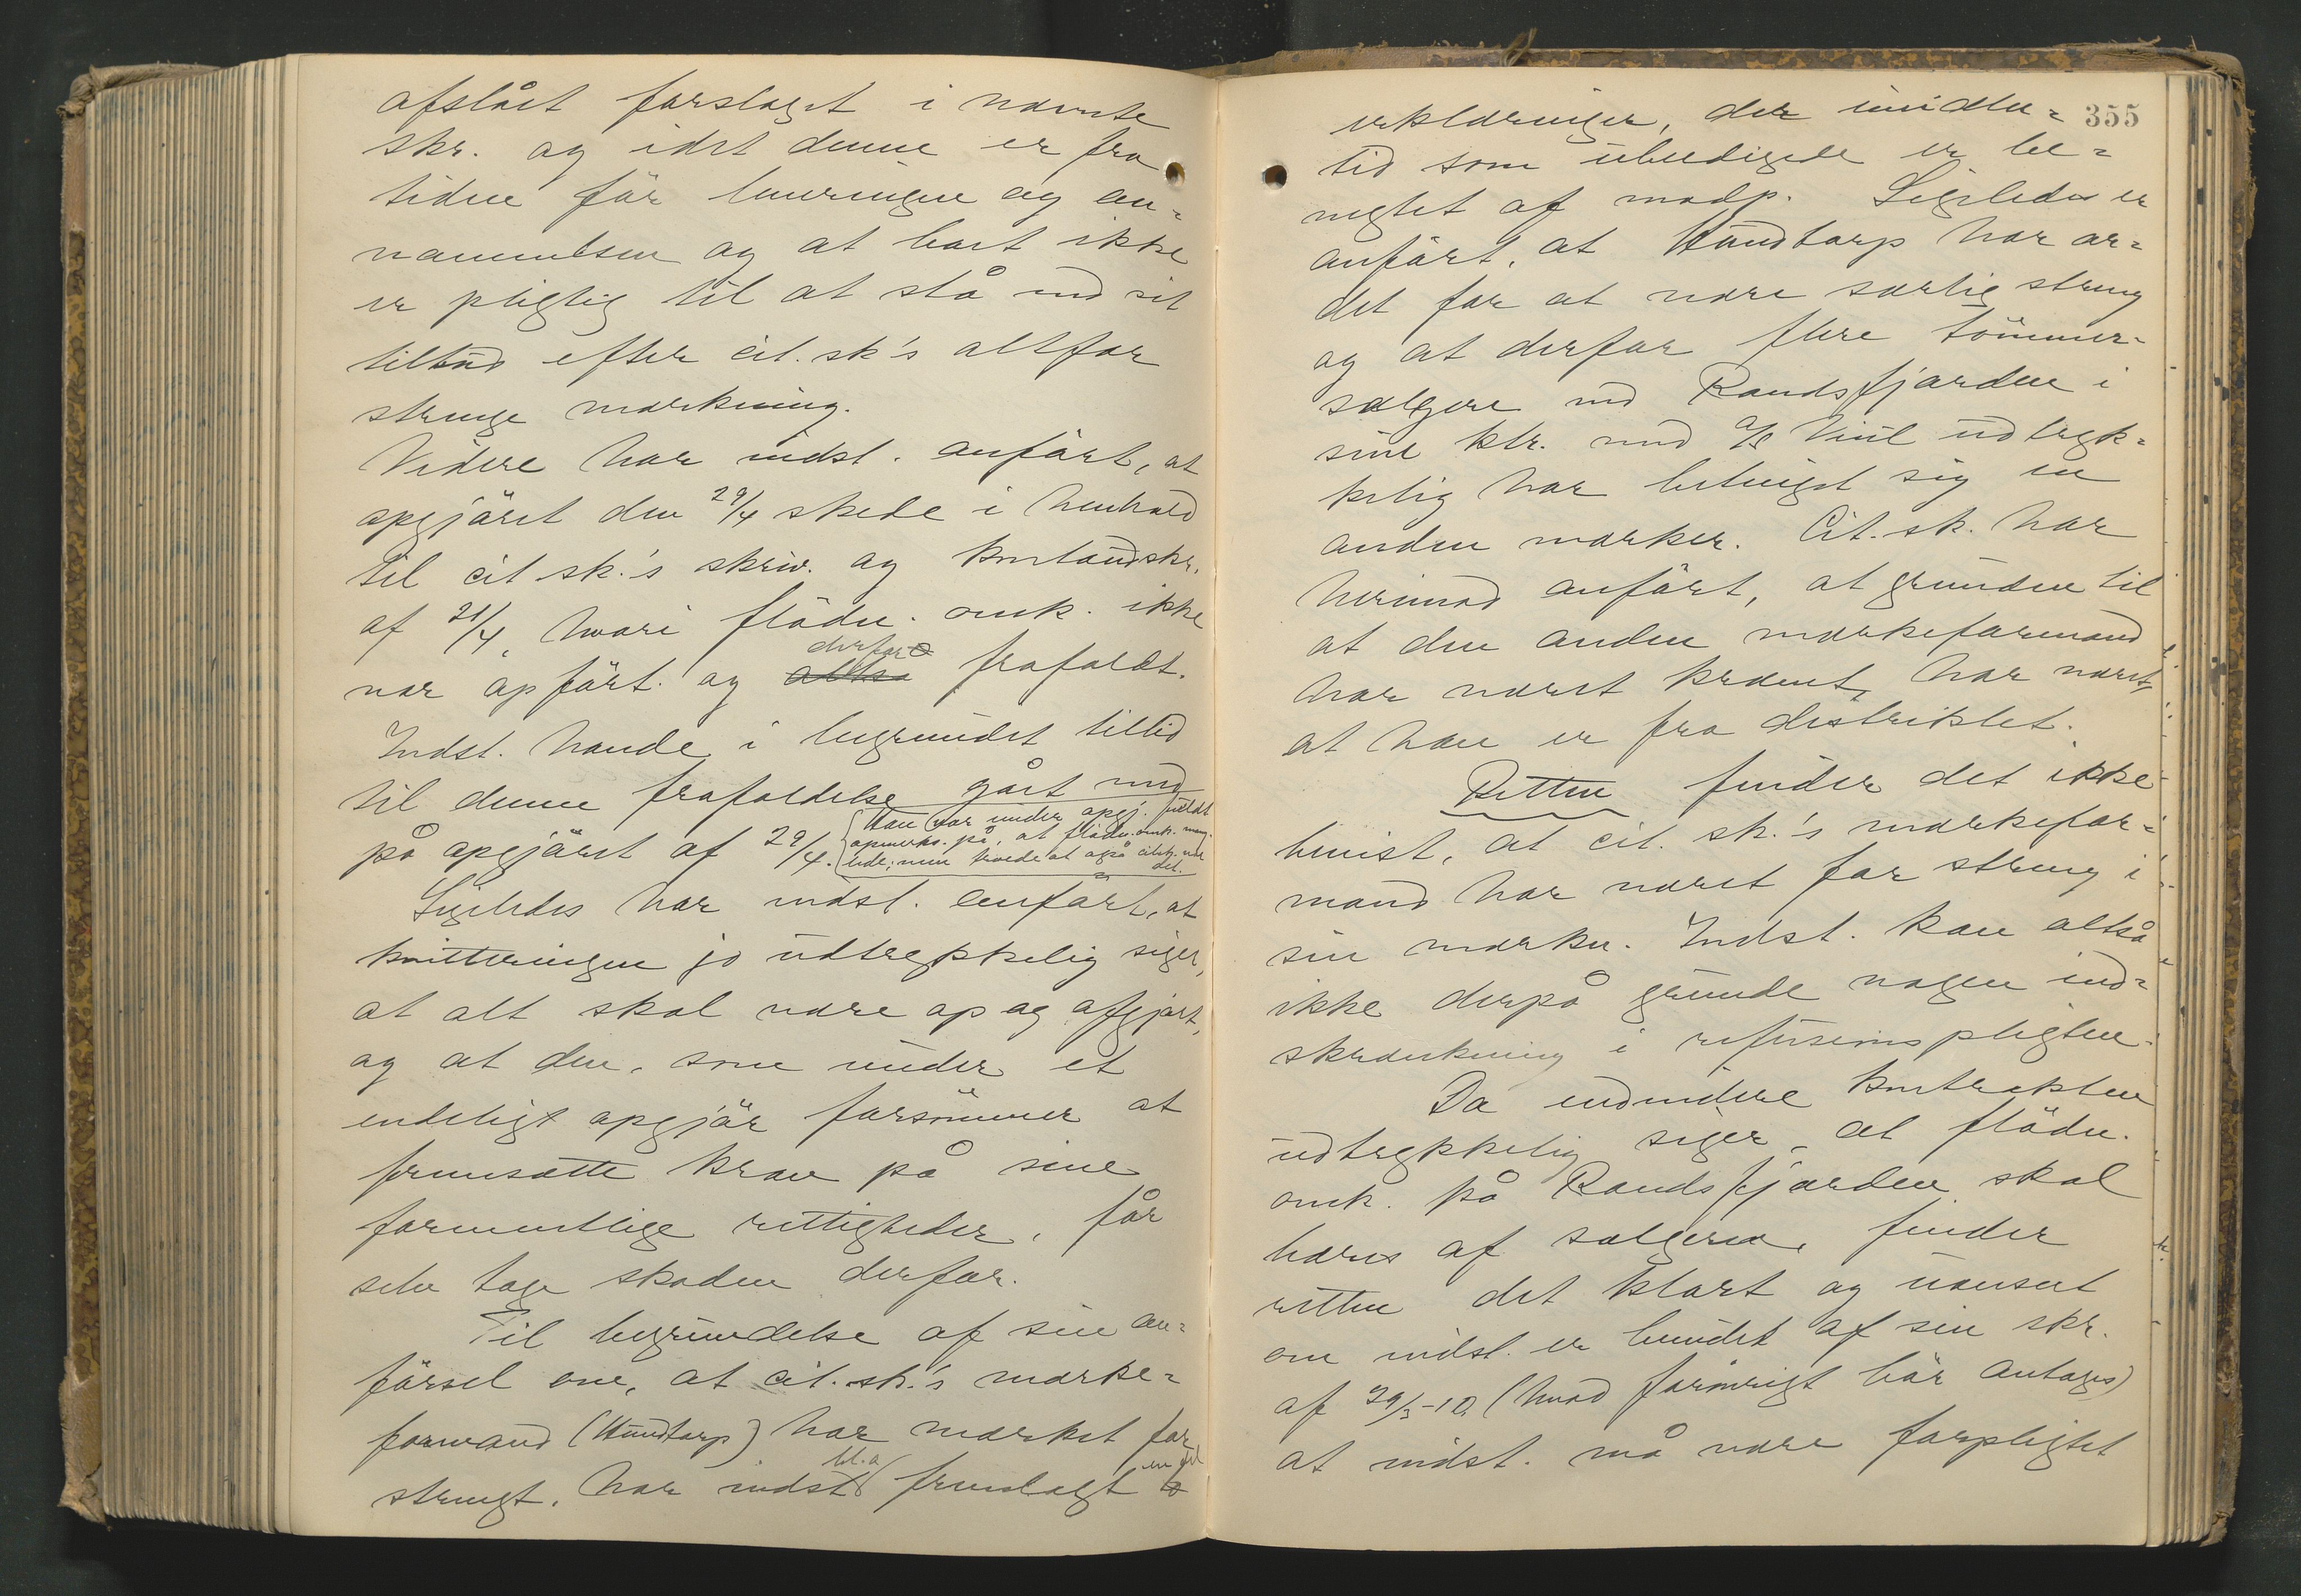 afslået forslaget i nævnte
skr. og idet denne er fra
tiden før leveringen og an-
nammelsen og at bort ikke
er pligtig til at stå ved sit
tilbud efter cit.sk's altfor
strenge mærkning.
Videre har indst. anført, at
opgjøret den 29/4 skede i henhold
til cit sk.'s skriv. og kontoudskr.
af 21/4, hvori flödn. omk. ikke
var opført og altså derfor frafaldt.
Indst. havde i begrundet tillid
til denne frafaldelse gået med
på opgjøret af 29/4. (Han var under opgj. fuldt
opmerks. på, at flödn.omk. mang-
lede; men troede at også cit.sk. var
det.
Ligeledes har indst. anført, at
kvitteringen jo udtrykkelig siger,
at alt skal være op og afgjort,
og at den, som under et
endeligt opgjör forsömmer at
fremsætte krav på sine
formentlige rettigheder, får
selv tage skaden derfor.
Til begrundelse af sin an-
førsel om, at cit.sk.'s mærke-
formand (Hundtorp) har mærket for
strengt, har indst bl.a fremlagt en del
355
erklæringer, der imidler-
tid som ubeedigede er be-
nægtet af modp. Ligeledes er
anført, at Hundtorp har or-
det for at være særlig streng
og at derfor flere tömmer-
sælgere ved Randsfjorden i
sine ktr. med A/S Viul udtryk-
kelig har betinget sig en
anden mærker. Cit.sk. har
herimod anført, at grunden til
at den anden mærkeformand
har været krævet, har været,
at han er fra distriktet.
Retten finder det ikke
bevist, at cit. sk.'s mærkefor-
mand har været for streng i
sin mærkn. Indst. kan altså
ikke derpå grunde nogen ind-
skrænkning i refusionspligten.
Da endvidere kontrakten
udtrykkelig siger, at flödn.
omk. på Randsfjorden skal
bæres af sælgeren, finder
retten det klart og uanset
om indst. er bundet af sin skr.
af 29/3-10, (hvad forøvrigt bör antages)
at indst. må være forpligtet